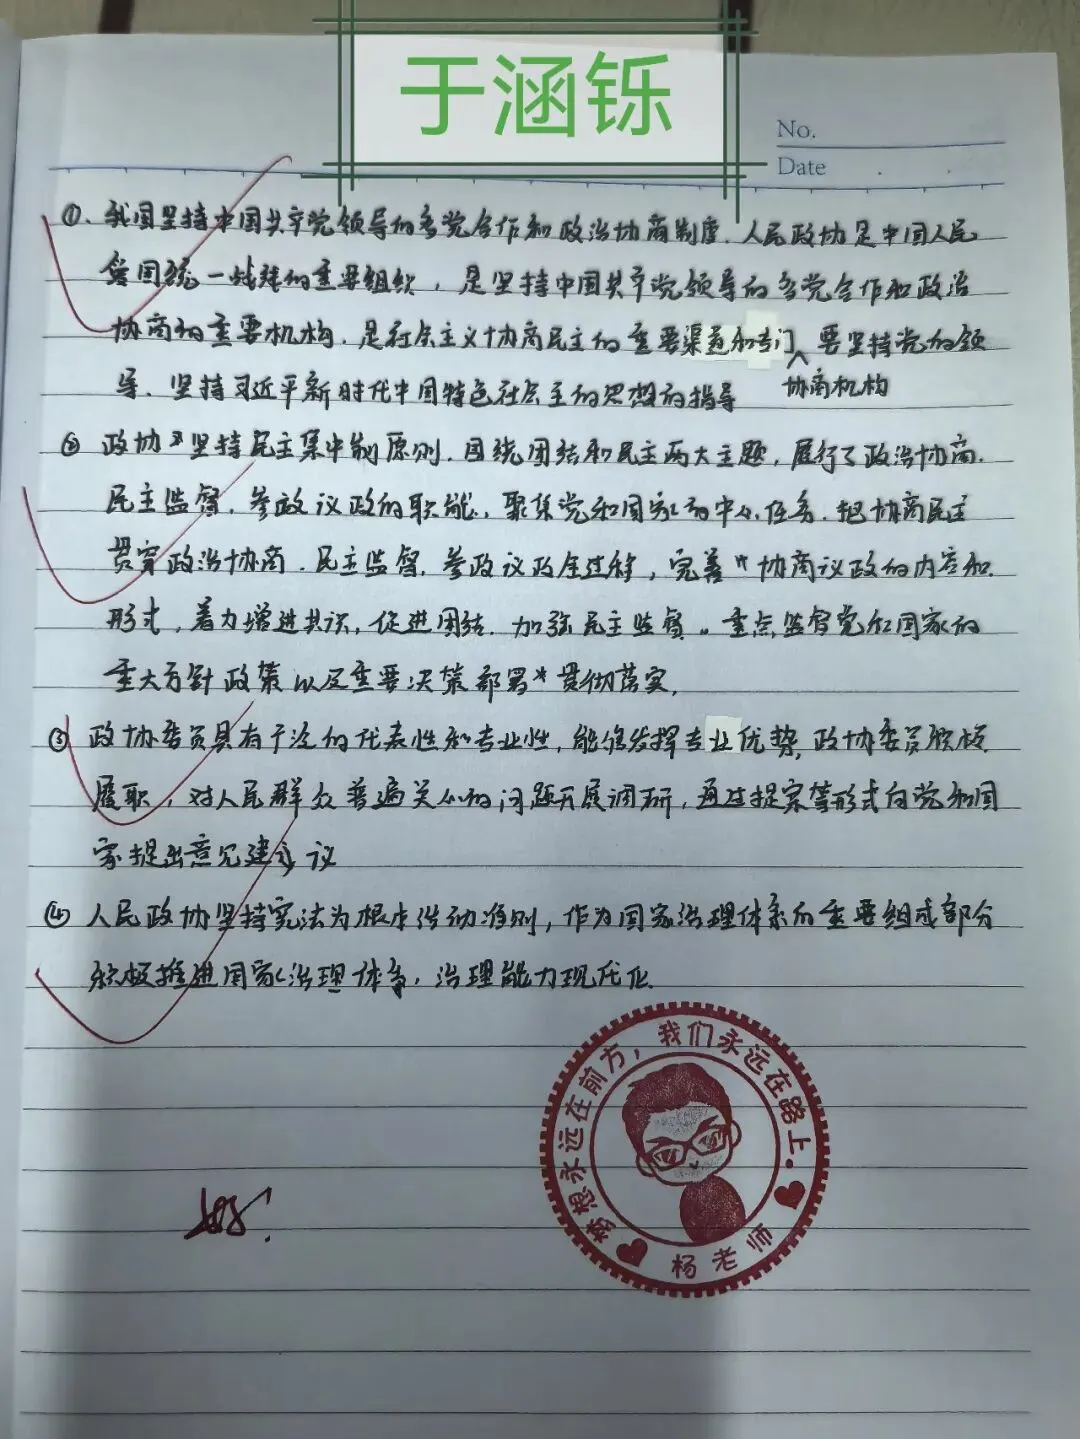 于涵铄
No.
Date
①、我国坚持中国共产党领导的多党合作和政治协商制度.人民政协是中国人民
爱国统一战线的重要组织，是坚持中国共产党领导的多党合作和政治
协商的重要机构.是社会主义协商民主的重要渠道和专门 要坚持党的领
协商机构
导.坚持习近平新时代中国特色社会主的思想的指导
② 政协 坚持民主集中制原则.围绕团结和民主两大主题，履行了政治协商.
民主监督.参政议政的职能.聚焦党和国家的中心任务.把协商民主
贯穿政治协商.民主监督.参政议政全过程，完善 协商议政的内容和
形式，着力增进共识，促进团结.加强民主监督。重点监督党和国家的
重大方针政策以及重要决策部署 贯彻落实.
③ 政协委员具有广泛的代表性和专业性，能够发挥专业优势，政协委员积极
履职，对人民群众普遍关心的问题开展调研，通过提案等形式向党和国
家提出意见建议
④ 人民政协坚持宪法为根本活动准则，作为国家治理体系的重要组成部分
积极推进国家治理体系，治理能力现代化.
梦想永远在前方，我们永远在路上.
杨老师
好.